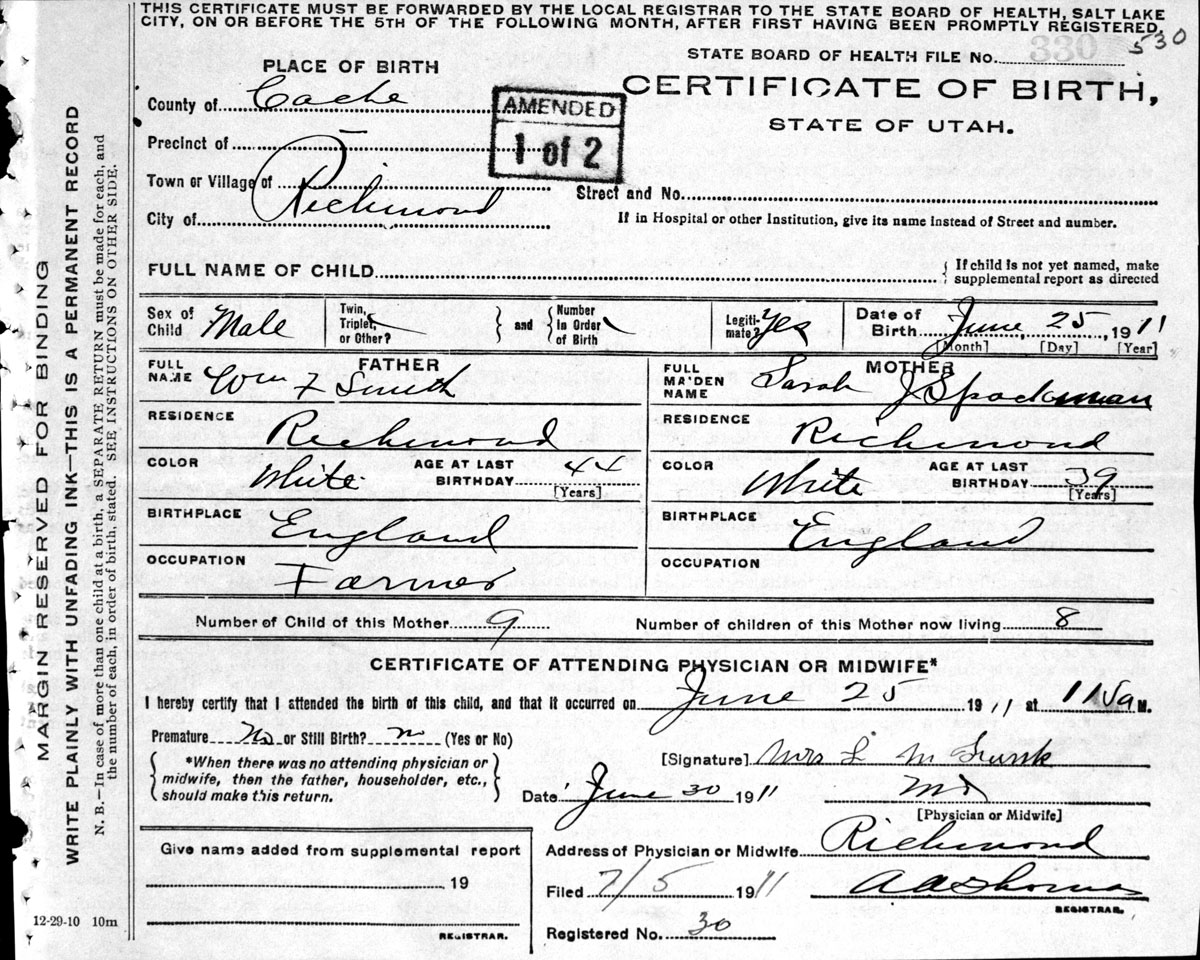 THIS CERTIFICATE MUST BE FORWARDED BY THE LOCAL REGISTRAR TO THE STATE BOARD OF HEALTH, SALT LAKE
CITY, ON OR BEFORE THE 5TH OF THE FOLLOWING MONTH, AFTER FIRST HAVING BEEN PROMPTLY REGISTERED.
530
STATE BOARD OF HEALTH FILE No. 330
PLACE OF BIRTH
CERTIFICATE OF BIRTH,
STATE OF UTAH.
County of Cache
AMENDED
1 of 2
Precinct of
Town or Village of Richmond
Street and No.
City of
If in Hospital or other Institution, give its name instead of Street and number.
FULL NAME OF CHILD
{ If child is not yet named, make
supplemental report as directed
Sex of Child Male
Twin, Triplet, or Other? } and { Number in Order of Birth
Legiti-mate? Yes
Date of Birth June 25, 1911
[Month] [Day] [Year]
FATHER
FULL NAME Wm F Smith
MOTHER
FULL MAIDEN NAME Sarah J Spackman
RESIDENCE Richmond
RESIDENCE Richmond
COLOR White AGE AT LAST BIRTHDAY 44 [Years]
COLOR White AGE AT LAST BIRTHDAY 39 [Years]
BIRTHPLACE England
BIRTHPLACE England
OCCUPATION Farmer
OCCUPATION
Number of Child of this Mother 9 Number of children of this Mother now living 8
CERTIFICATE OF ATTENDING PHYSICIAN OR MIDWIFE*
I hereby certify that I attended the birth of this child, and that it occurred on June 25 1911 at M.
Premature No or Still Birth? no (Yes or No)
{ *When there was no attending physician or
midwife, then the father, householder, etc.,
should make this return. }
[Signature] Mrs L M
Date June 30 1911
[Physician or Midwife]
Give name added from supplemental report
19
REGISTRAR.
Address of Physician or Midwife Richmond
Filed 7/5 1911 A A Thomas
REGISTRAR.
Registered No. 30
12-29-10 10m
MARGIN RESERVED FOR BINDING
WRITE PLAINLY WITH UNFADING INK—THIS IS A PERMANENT RECORD
N. B.—In case of more than one child at a birth, a SEPARATE RETURN must be made for each, and
the number of each, in order of birth, stated. SEE INSTRUCTIONS ON OTHER SIDE.